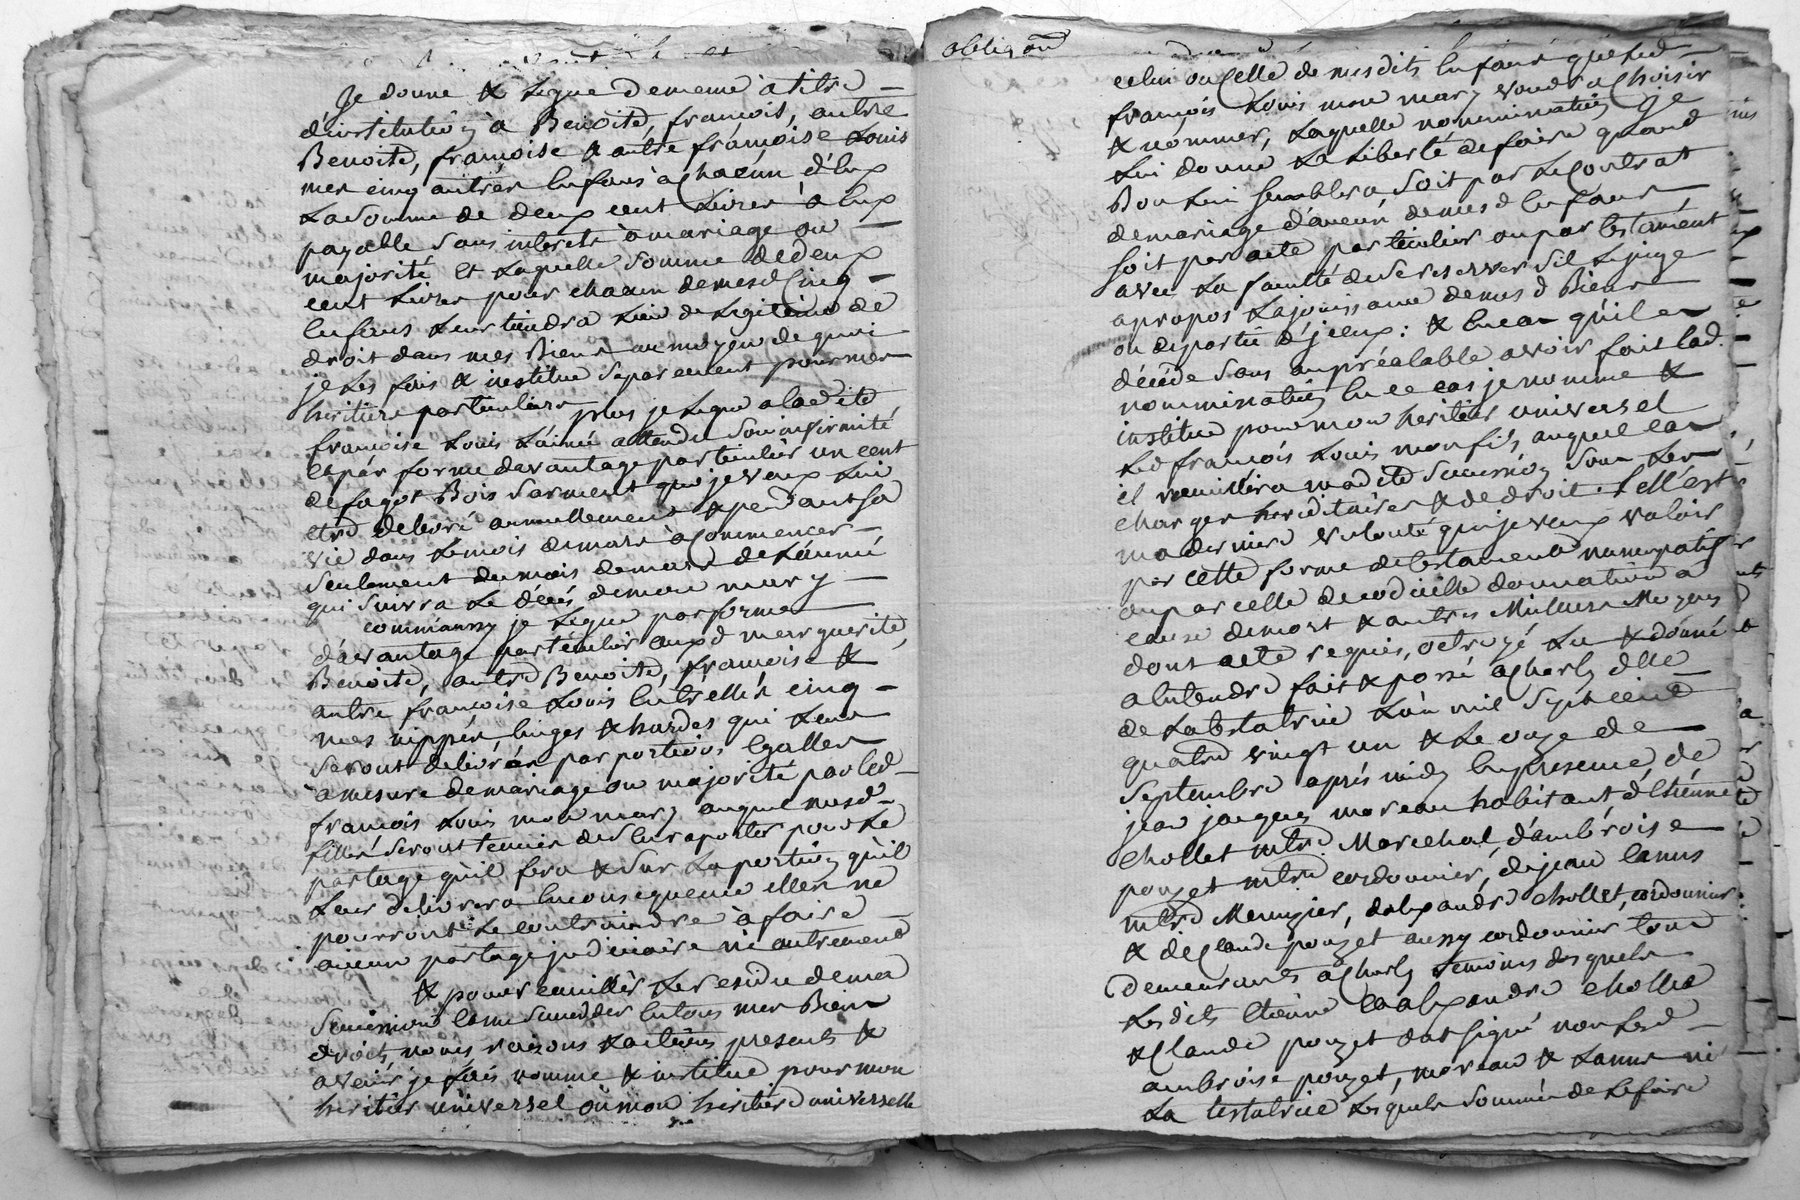 Je donne & Legue de meme à titre
d'institution à Benoite, françois, autre
Benoite, françoise & autre françoise Louis
mes cinq autres Enfans à Chacun d'Eux
La Somme de deux cent Livres à Eux
payable Sans interets à mariage ou
majorité et Laquelle Somme de deux
cent Livres pour chacun de mesd Cinq
Enfans Leur tiendra Lieu de Legitime de
droit dans mes Biens au moyen de quoi
je Les fais & institue Separement pour mes
heritiers particuliers plus je Legue a ladite
françoise Louis L'ainée attendu Son infirmité
et par forme davantage particulier un cent
de fagot Bois Sarment que je veux Lui
etre delivré annuellement & pendant Sa
vie dans Le mois de mars à Commencer
Seulement du mois de mars de L'année
qui Suivra Le décès de mon mary
comme aussy je Legue par forme
d'avantage particulier auxd marguerite,
Benoite, autre Benoite, françoise &
autre françoise Louis Entr'elles cinq
mes nippes, linges & hardes qui Leur
Seront delivrés par portions Egalles
à mesure de mariage ou majorité par led
françois Louis mon mary auquel mesd
filles Seront tenues de S'en raporter pour Le
partage qu'il fera & Sur La portion qu'il
Leur delivrera En consequence elles ne
pourront Le contraindre à faire
aucun partage judiciaire ni autrement
& pour receuillir Le residu de ma
Succession & me Succeder En tous mes Biens
droits, noms raisons & actions presents &
avenir je fais nomme & institue pour mon
heritier universel ou mon heritiere universelle
obligaon
celui ou Celle de mesdits Enfans que led
françois Louis mon mary voudra Choisir
& nommer, Laquelle nommination je
Lui donne La Liberté de faire quand
Bon Lui Semblera Soit par Le Contrat
de mariage d'aucun de mesd Enfans
Soit par acte particulier ou par testament
avec La faculté de Se reserver S'il Le juge
apropos La jouissance de mesd Biens
ou de partie d'jceux : & En cas qu'il
décéde Sans au préalable avoir fait lad.
nommination En ce cas je nomme &
institue pour mon heritier universel
Led françois Louis mon fils, auquel cas
il receuillira madite Succession Sous Les
charges hereditaires & de droit. telle est
ma derniere volonté que je veux valoir
par cette forme de testament nuncupatif
ou par celle de codicille donnation à
cause de mort & autres Meilleurs Moyens
dont acte requis, octroyé Lu & donné
a Entendre fait & passé a Charly chés
de La testatrice L'an mil Sept cent
quatre vingt un & Le onze de
Septembre après midy En presence de
jean jacques moreau habitant, d'Etienne
Chollet mtre Marechal, d'ambroise
pouzet mtre cordonnier, de jean Canus
mtre Menuzier, d'alexandre chollet, cordonnier
& de Claude pouzet aussy cordonnier tous
demeurants à Charly temoins desquels
Lesdits Etienne & alexandre chollet
& Claude pouzet ont signé non Lesd
ambroise pouzet, moreau & Canus ni
La testatrice Lesquels Sommés de Le faire